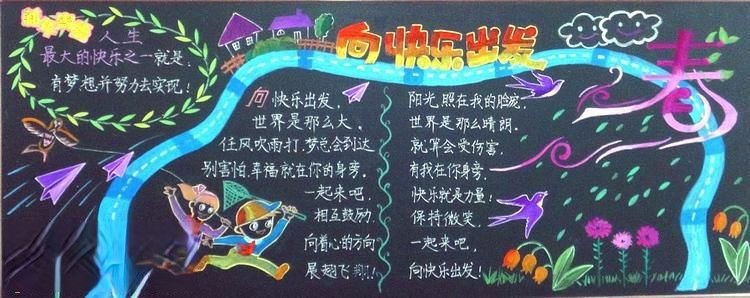 人生
最大的快乐之一就是：
有梦想并努力去实现！
向快乐出发
春
向快乐出发，
世界是那么大，
任风吹雨打，梦总会到达
别害怕，幸福就在你的身旁，
一起来吧，
相互鼓励，
向着心的方向
展翅飞翔！
阳光，照在我的脸庞，
世界是那么晴朗，
就算会受伤害，
有我在你身旁，
快乐就是力量！
保持微笑，
一起来吧，
向快乐出发！